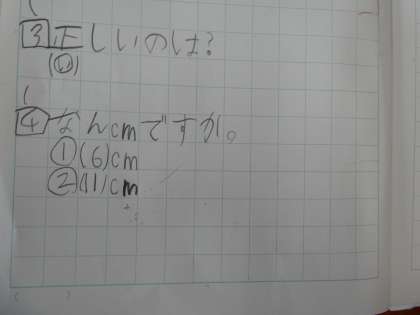 3 正しいのは?
(い)
4 なんcmですか。
①(6)cm
②(11)cm